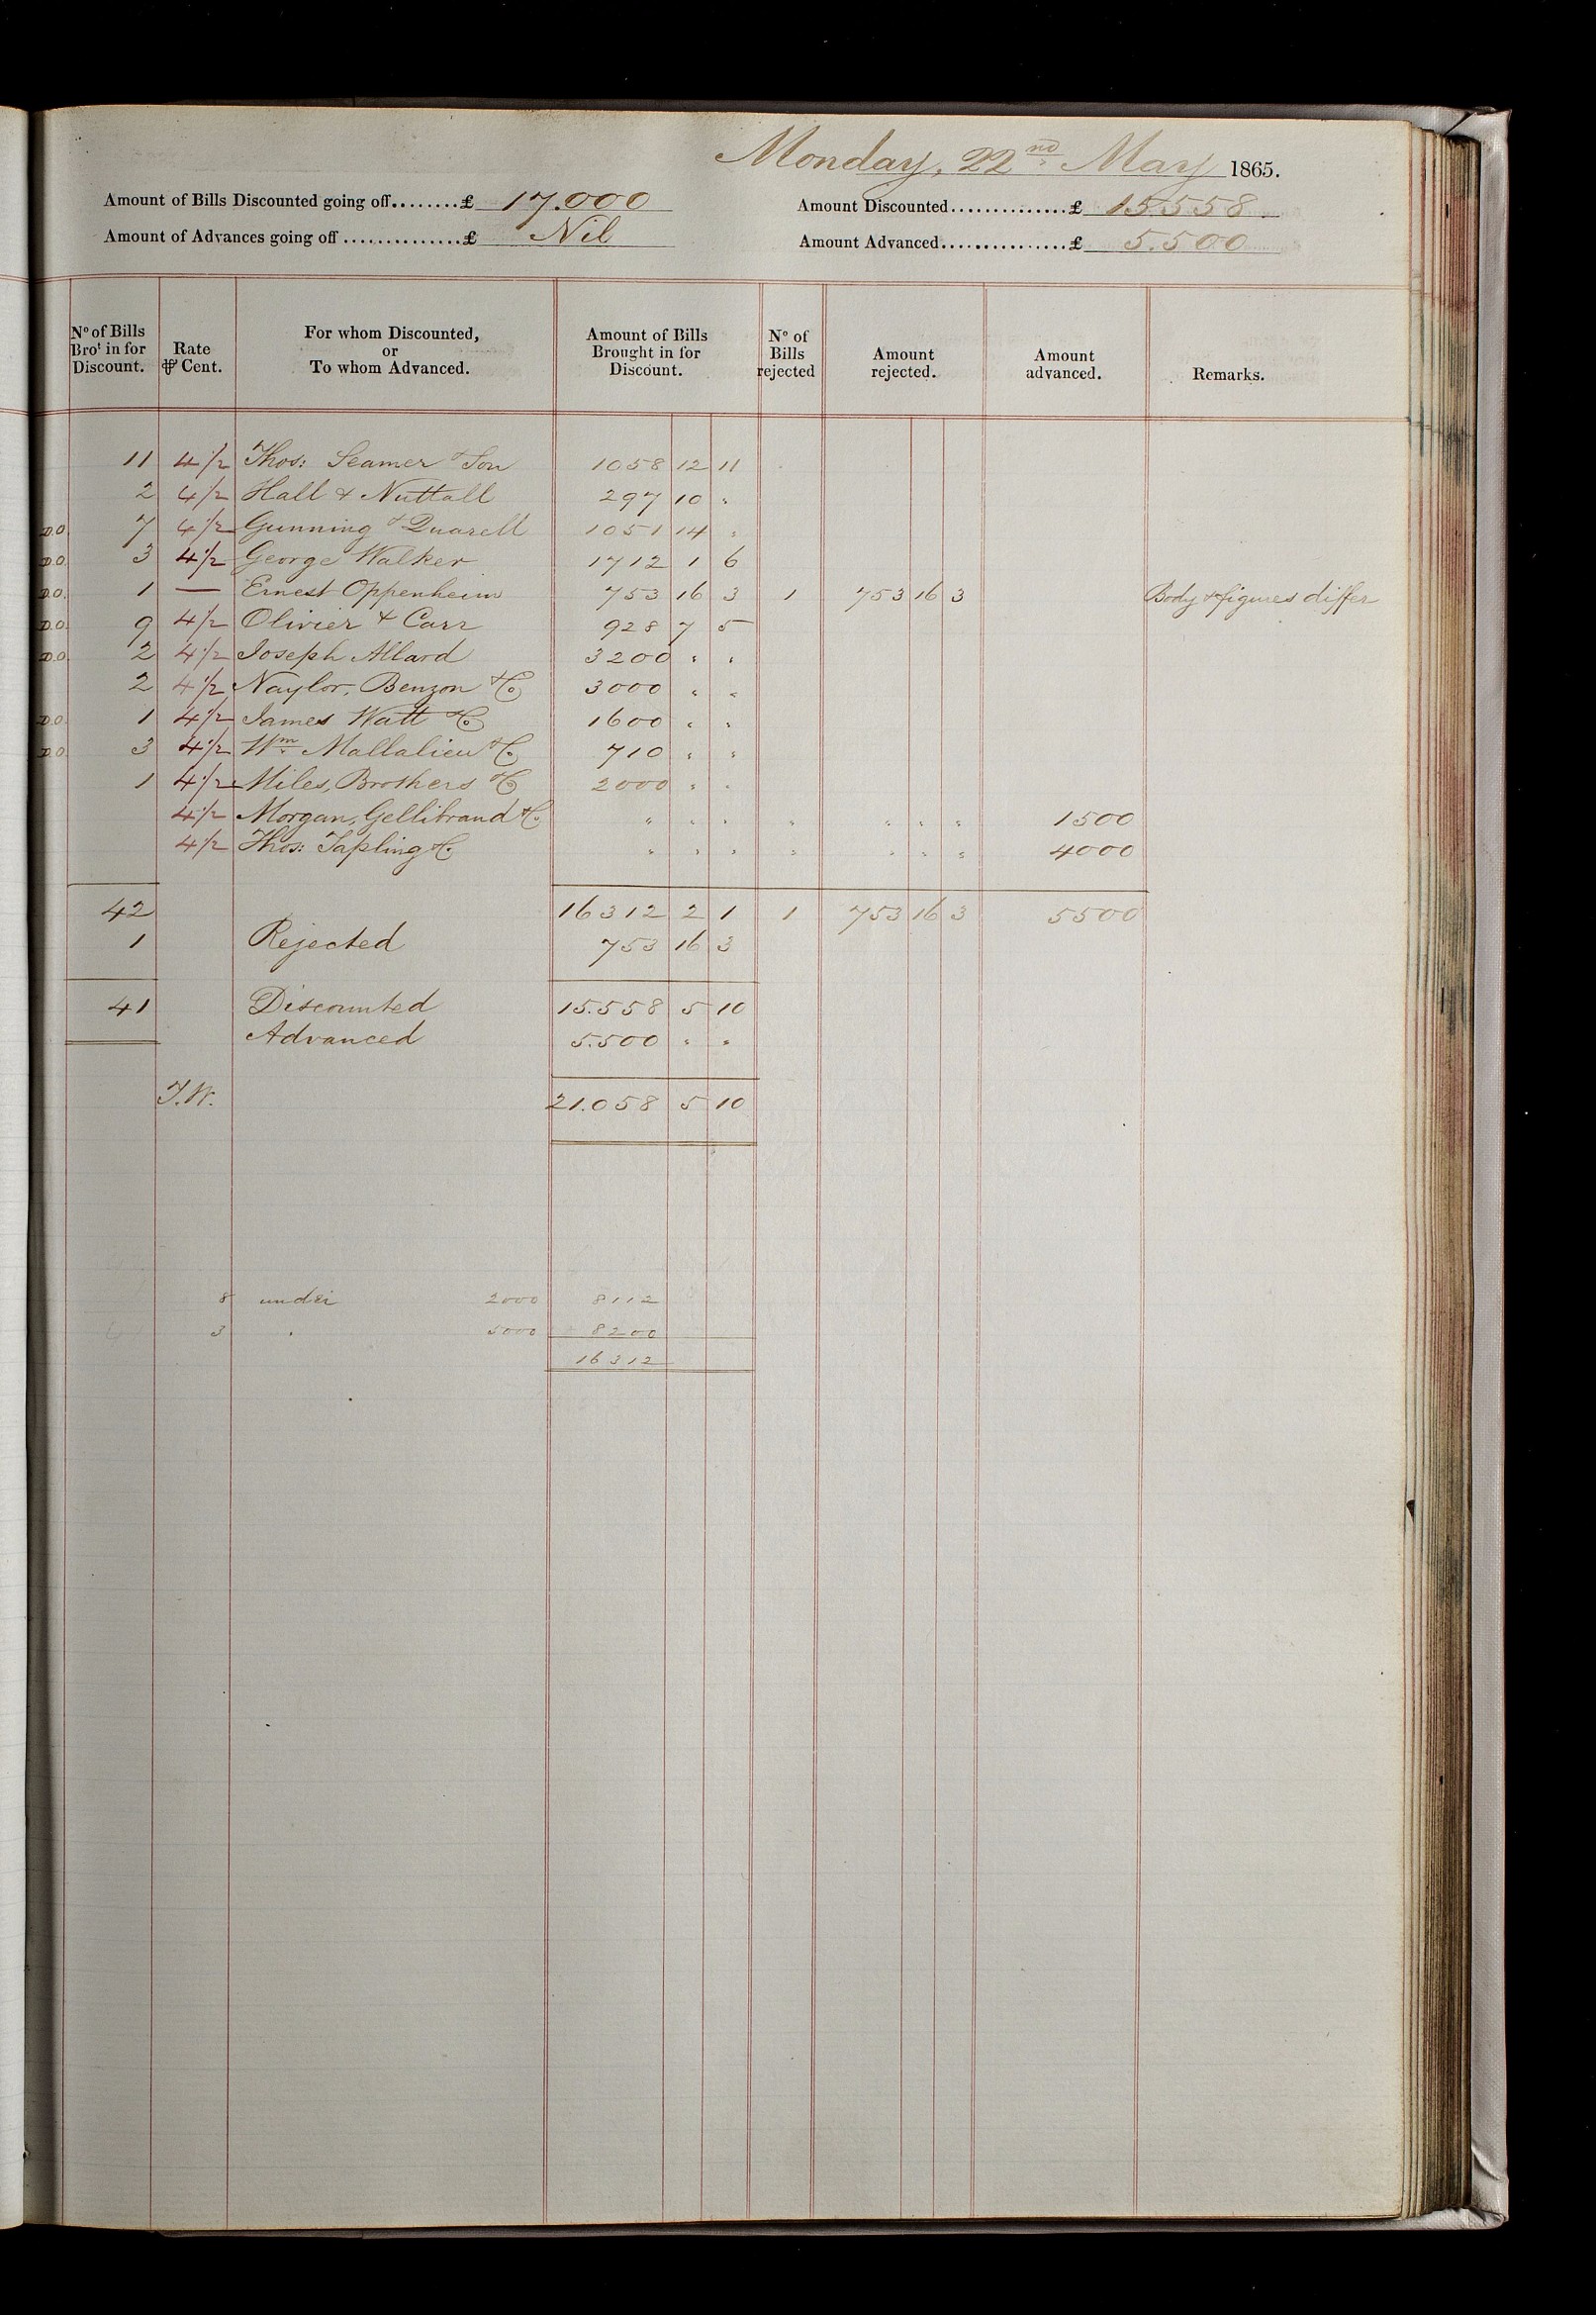 Monday, 22nd May 1865.
Amount of Bills Discounted going off........£ 17.000 Amount Discounted..............£ 15558
Amount of Advances going off..............£ Nil Amount Advanced................£ 5.500
No of Bills Brot in for Discount. Rate ⅌ Cent. For whom Discounted, or To whom Advanced. Amount of Bills Brought in for Discount. No of Bills rejected Amount rejected. Amount advanced. Remarks.
11 4½ Thos: Seamer & Son 1058 12 11
2 4½ Hall & Nuttall 297 10 "
D.O. 7 4½ Gunning & Quarell 1051 14 "
D.O. 3 4½ George Walker 1712 1 6
D.O. 1 — Ernest Oppenheim 753 16 3 1 753 16 3 Body & figures differ
D.O. 9 4½ Olivier & Carr 928 7 5
D.O. 2 4½ Joseph Allard 3200 " "
2 4½ Naylor, Benzon & Co 3000 " "
D.O. 1 4½ James Watt & Co 1600 " "
D.O. 3 4½ Wm Mallalieu & Co 710 " "
1 4½ Miles, Brothers & Co 2000 " "
4½ Morgan, Gellibrand & Co " " " " " " " 1500
4½ Thos: Tapling & Co " " " " " " " 4000
42 16312 2 1 1 753 16 3 5500
1 Rejected 753 16 3
41 Discounted 15.558 5 10
Advanced 5.500 " "
T.W. 21.058 5 10
8 under 2000 8112
3 " 5000 8200
16312